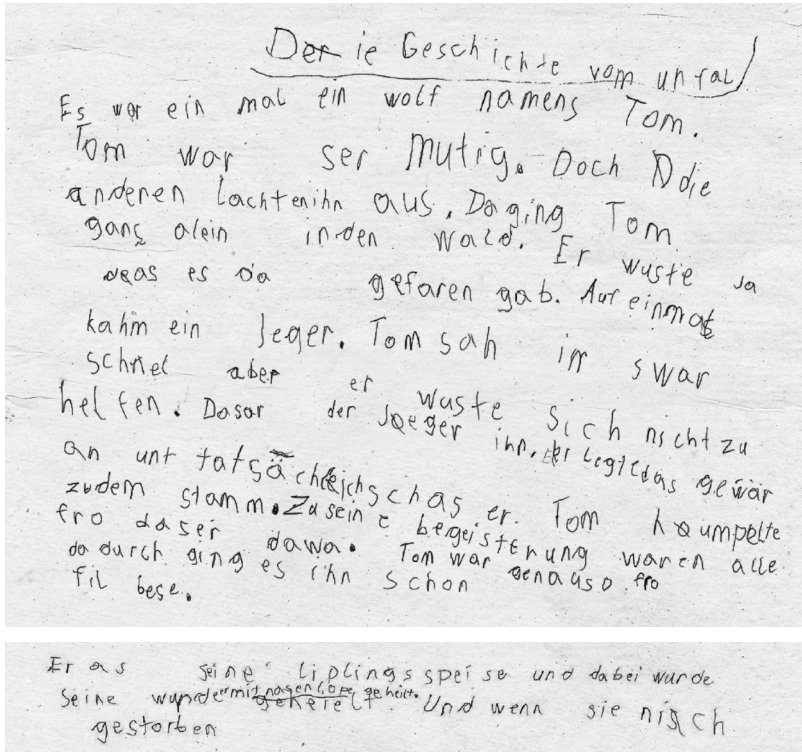 Die Geschichte vom unfal
Es war ein mal ein wolf namens Tom.
Tom war ser Mutig. Doch Ddie
anderen lachten ihn aus. Da ging Tom
ganz alein in den wald. Er wuste ja
das es da gefaren gab. Auf einmal
kahm ein Jeger. Tom sah in swar
schnel aber er wuste sich nicht zu
helfen. Da sar der Jaeger ihn. er legte das gewär
an unt tatsächleich schas er. Tom humpelte
zu dem stamm. Zu seine begeisterung waren alle
fro das er da wa. Tom war genauso fro
da durch ging es ihn schon
fil bese.
Er as seine liplingsspeise und dabei wurde
seine wunde mit geheielt
Und wenn sie nisch
gestorben